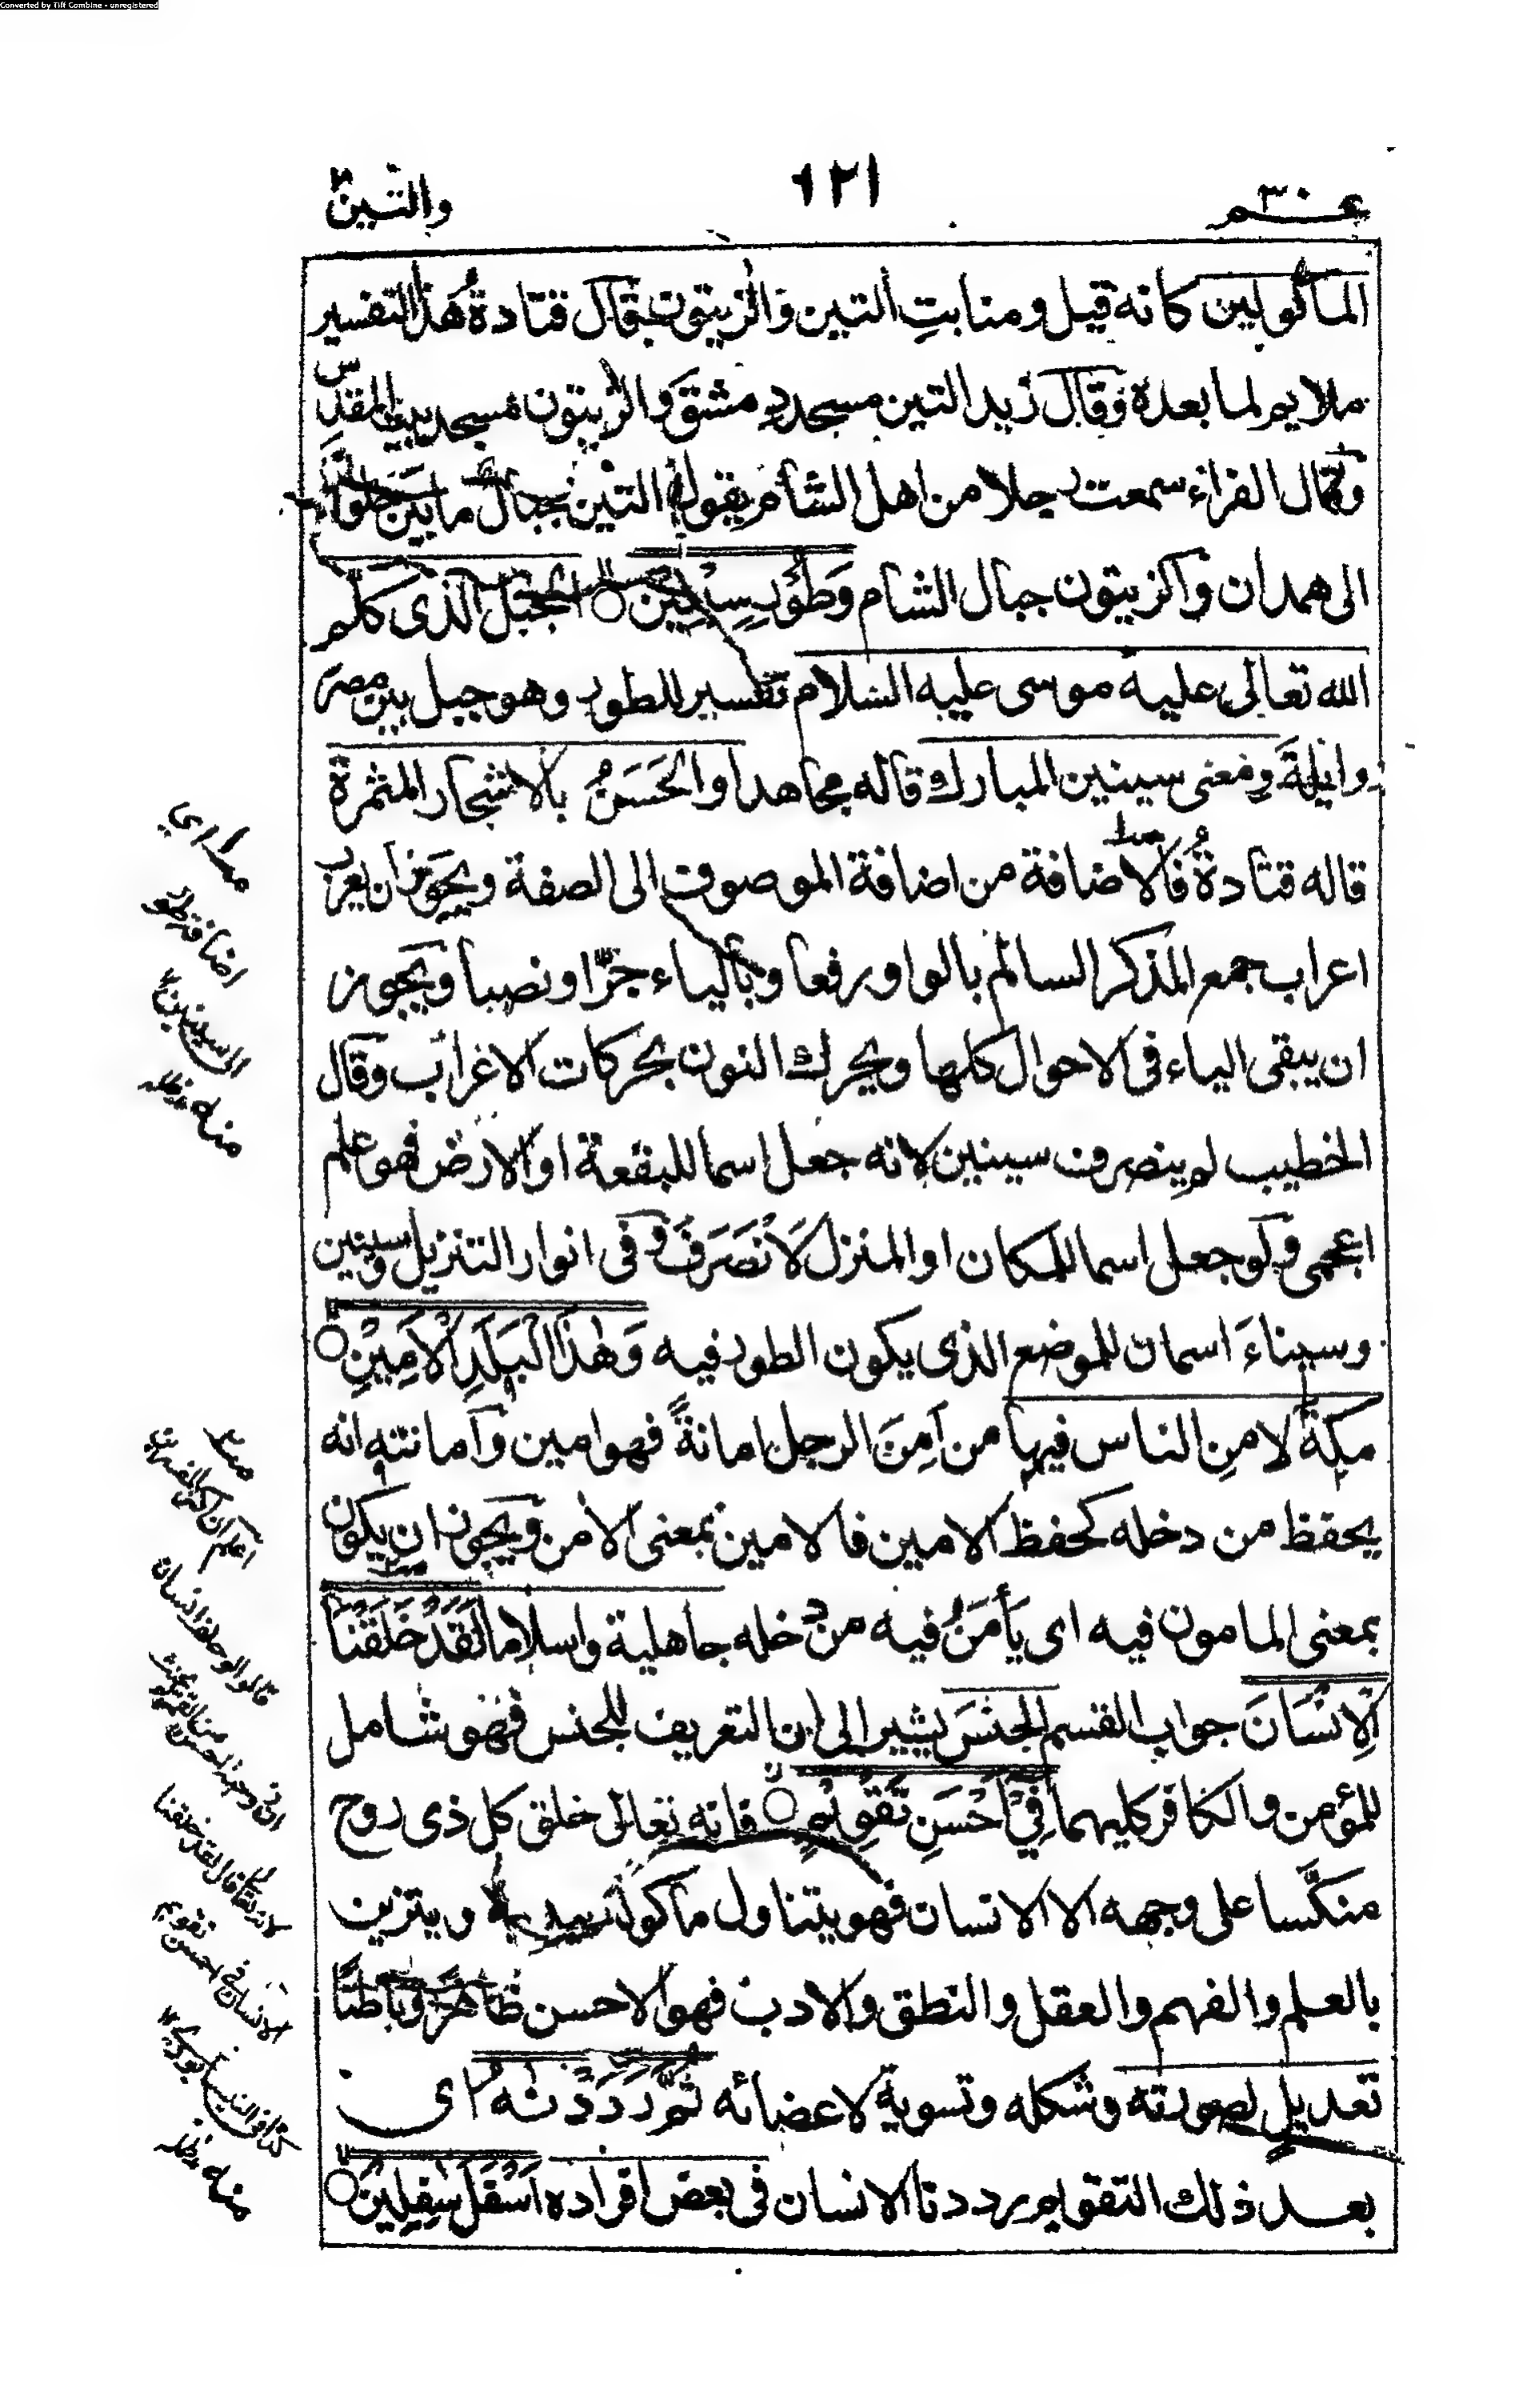 Converted by Tiff Combine - unregistered
عـم ٣٠
٦٢١
والتين
المأكولين كانه قيل ومنابتِ التين والزيتون وقال قتادةُ هذا التفسير
ملايم لما بعده وقال زيد التين مسجد دمشق والزيتون مسجد بيت المقدس
وقال الفراء سمعت رجلا من اهل الشام يقول التين جبال ما بين حلوان
الى همدان والزيتون جبال الشام وَطُوْرِ سِيْنِيْنَ الجبل الذى كلم
الله تعالى عليه موسى عليه السلام تفسير للطور وهو جبل بين مصر
وايلة ومعنى سينين المبارك قاله مجاهد او الحَسَنُ بالاشجار المثمرة
قاله قتادةُ فالاضافة من اضافة الموصوف الى الصفة ويجوز ان يعرب
اعراب جمع المذكر السالم بالواو رفعا وبالياء جرّا ونصبا ويجوز
ان يبقى الياء فى الاحوال كلها ويحرك النون بحركات الاعراب وقال
الخطيب لم ينصرف سينين لانه جعل اسما للبقعة او الارض فهو علم
اعجمى ولو جعل اسما للمكان او المنزل لانصَرَفَ وفى انوار التنزيل وسينين
وسيناءَ اسمان للموضع الذى يكون الطور فيه وَهٰذَا الْبَلَدِ الْاَمِيْنِ
مكة لامنِ الناس فيها من اَمِنَ الرجل امانةً فهو امين وامانته انه
يحفظ من دخله كحفظ الامين فالامين بمعنى الامن ويجوز ان يكون
بمعنى المامون فيه اى يأمَنُ فيه من دخله جاهلية واسلاما لَقَدْ خَلَقْنَا
الْاِنْسَانَ جواب القسم الجنسَ يشير الى ان التعريف للجنس فهو شامل
للمؤمن والكافر كليهما فِيْٓ اَحْسَنِ تَقْوِيْمٍ فانه تعالى خلق كل ذى روح
منكّسا على وجهه الا الانسان فهو يتناول ماكوله بيديه ويتزين
بالعلم والفهم والعقل والنطق والادب فهو الاحسن ظاهرًا وباطنًا
تعديلٍ لصورته وشكله وتسوية لاعضائه ثُمَّ رَدَدْنٰهُ اى
بعد ذلك التقويم رددنا الانسان فى بعض افراده اَسْفَلَ سٰفِلِيْنَ
اضافة طور
الى سينين
منه